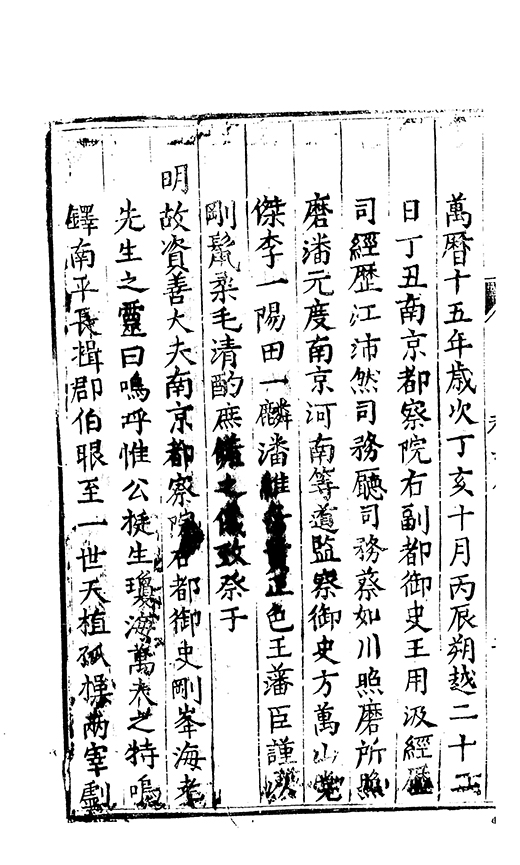 萬曆十五年歲次丁亥十月丙辰朔越二十二
日丁丑南京都察院右副都御史王用汲經歷
司經歷江沛然司務廳司務蔡如川照磨所照
磨潘元度南京河南等道監察御史方萬山党
傑李一陽田一麟潘維正色王藩臣謹以
剛鬣柔毛清酌庶儀致祭于
明故資善大夫南京都察院右都御史剛峯海老
先生之靈曰嗚呼惟公挺生瓊海萬夫之特鳴
鐸南平長揖郡伯眼至一世天植孤標兩宰劇